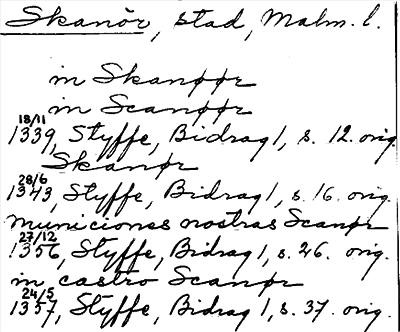 Skanör, stad, Malm. l.
in Skanøør
in Scanøør
18/11 1339, Styffe, Bidrag 1, s. 12. orig.
Skanør
28/6 1343, Styffe, Bidrag 1, s. 16. orig.
municiones nostras Scanør
27/12 1356, Styffe, Bidrag 1, s. 26. orig.
in castro Scanør
24/5 1357, Styffe, Bidrag 1, s. 37. orig.